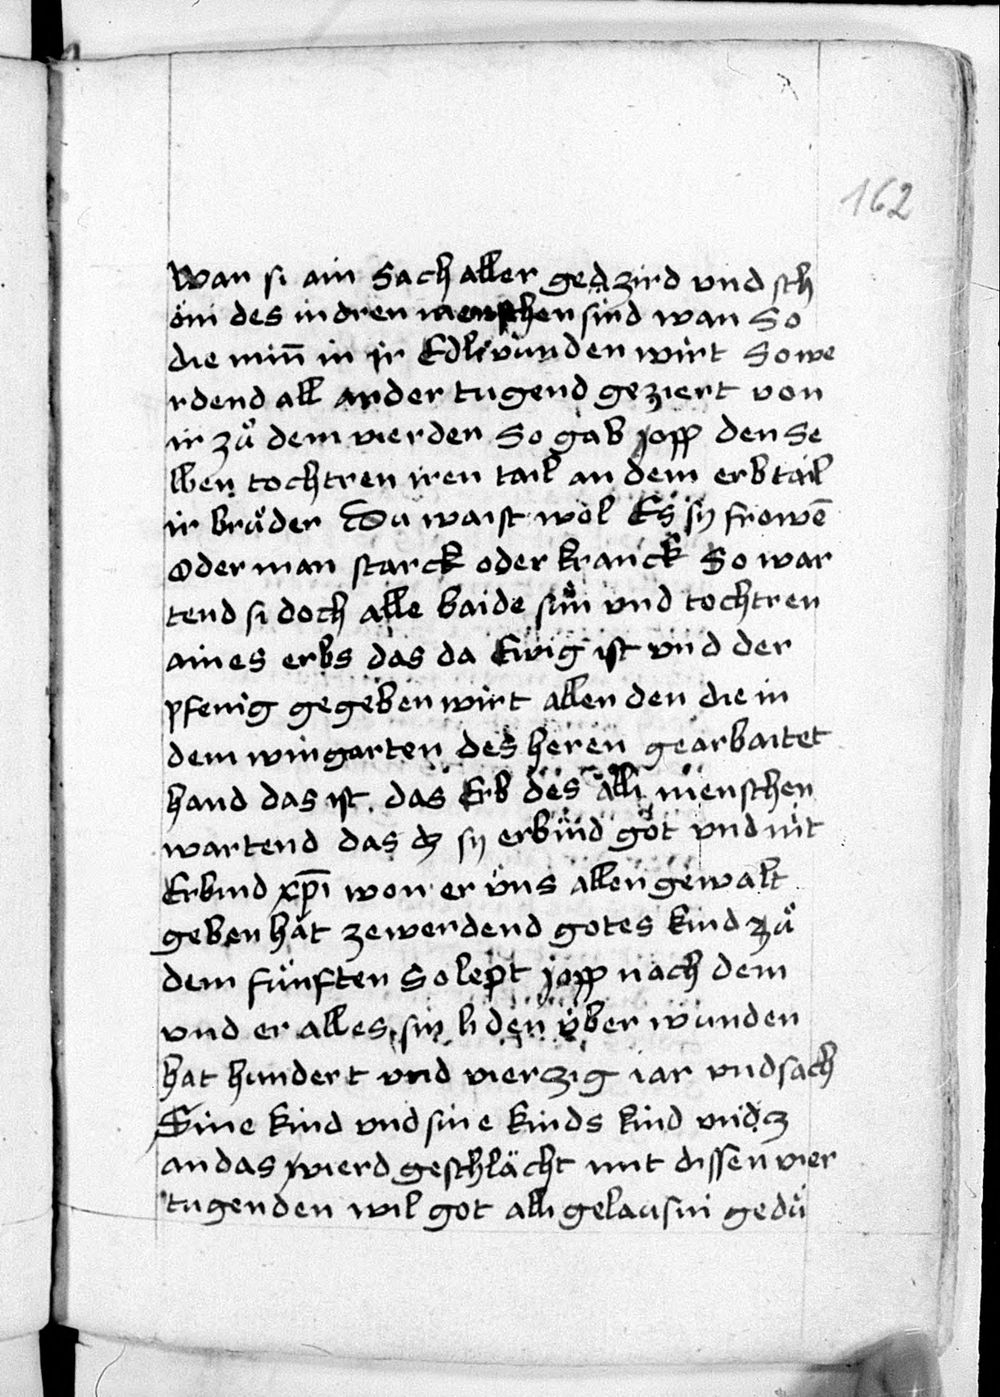 162
Wan si ain sach aller gedzird vnd sch
öni des indren menschen sind wan So
die min̄ in ir Edli vunden wirt So we
rdend all ander tugend geziert von
ir zuͦ dem vierden So gab jopp den Se
lben tochtren iren tail an dem erbtail
ir bruͤder Du waist wol Es sy frowē
Oder man starck oder kranck So war
tend si doch alle baide suͤn vnd tochtren
aines erbs das da Ewig ist vnd der
pfenig gegeben wirt allen den die in
dem wingarten des heren gearbaitet
hand das ist das Erb des alli menschen
wartend das dz sy erbind got vnd mit
Erbind xp̄i won er vns allen gewalt
geben hät zewerdend gotes kind zuͦ
dem fünften So lept jopp nach dem
vnd er alles sin liden v̈ber wunden
hat hundert vnd vierzig iar vnd sach
Sine kind vnd sine kinds kind vnd cz
an das vierd geschlächt mit dissen vier
tugenden wil got alli gelausni gedu